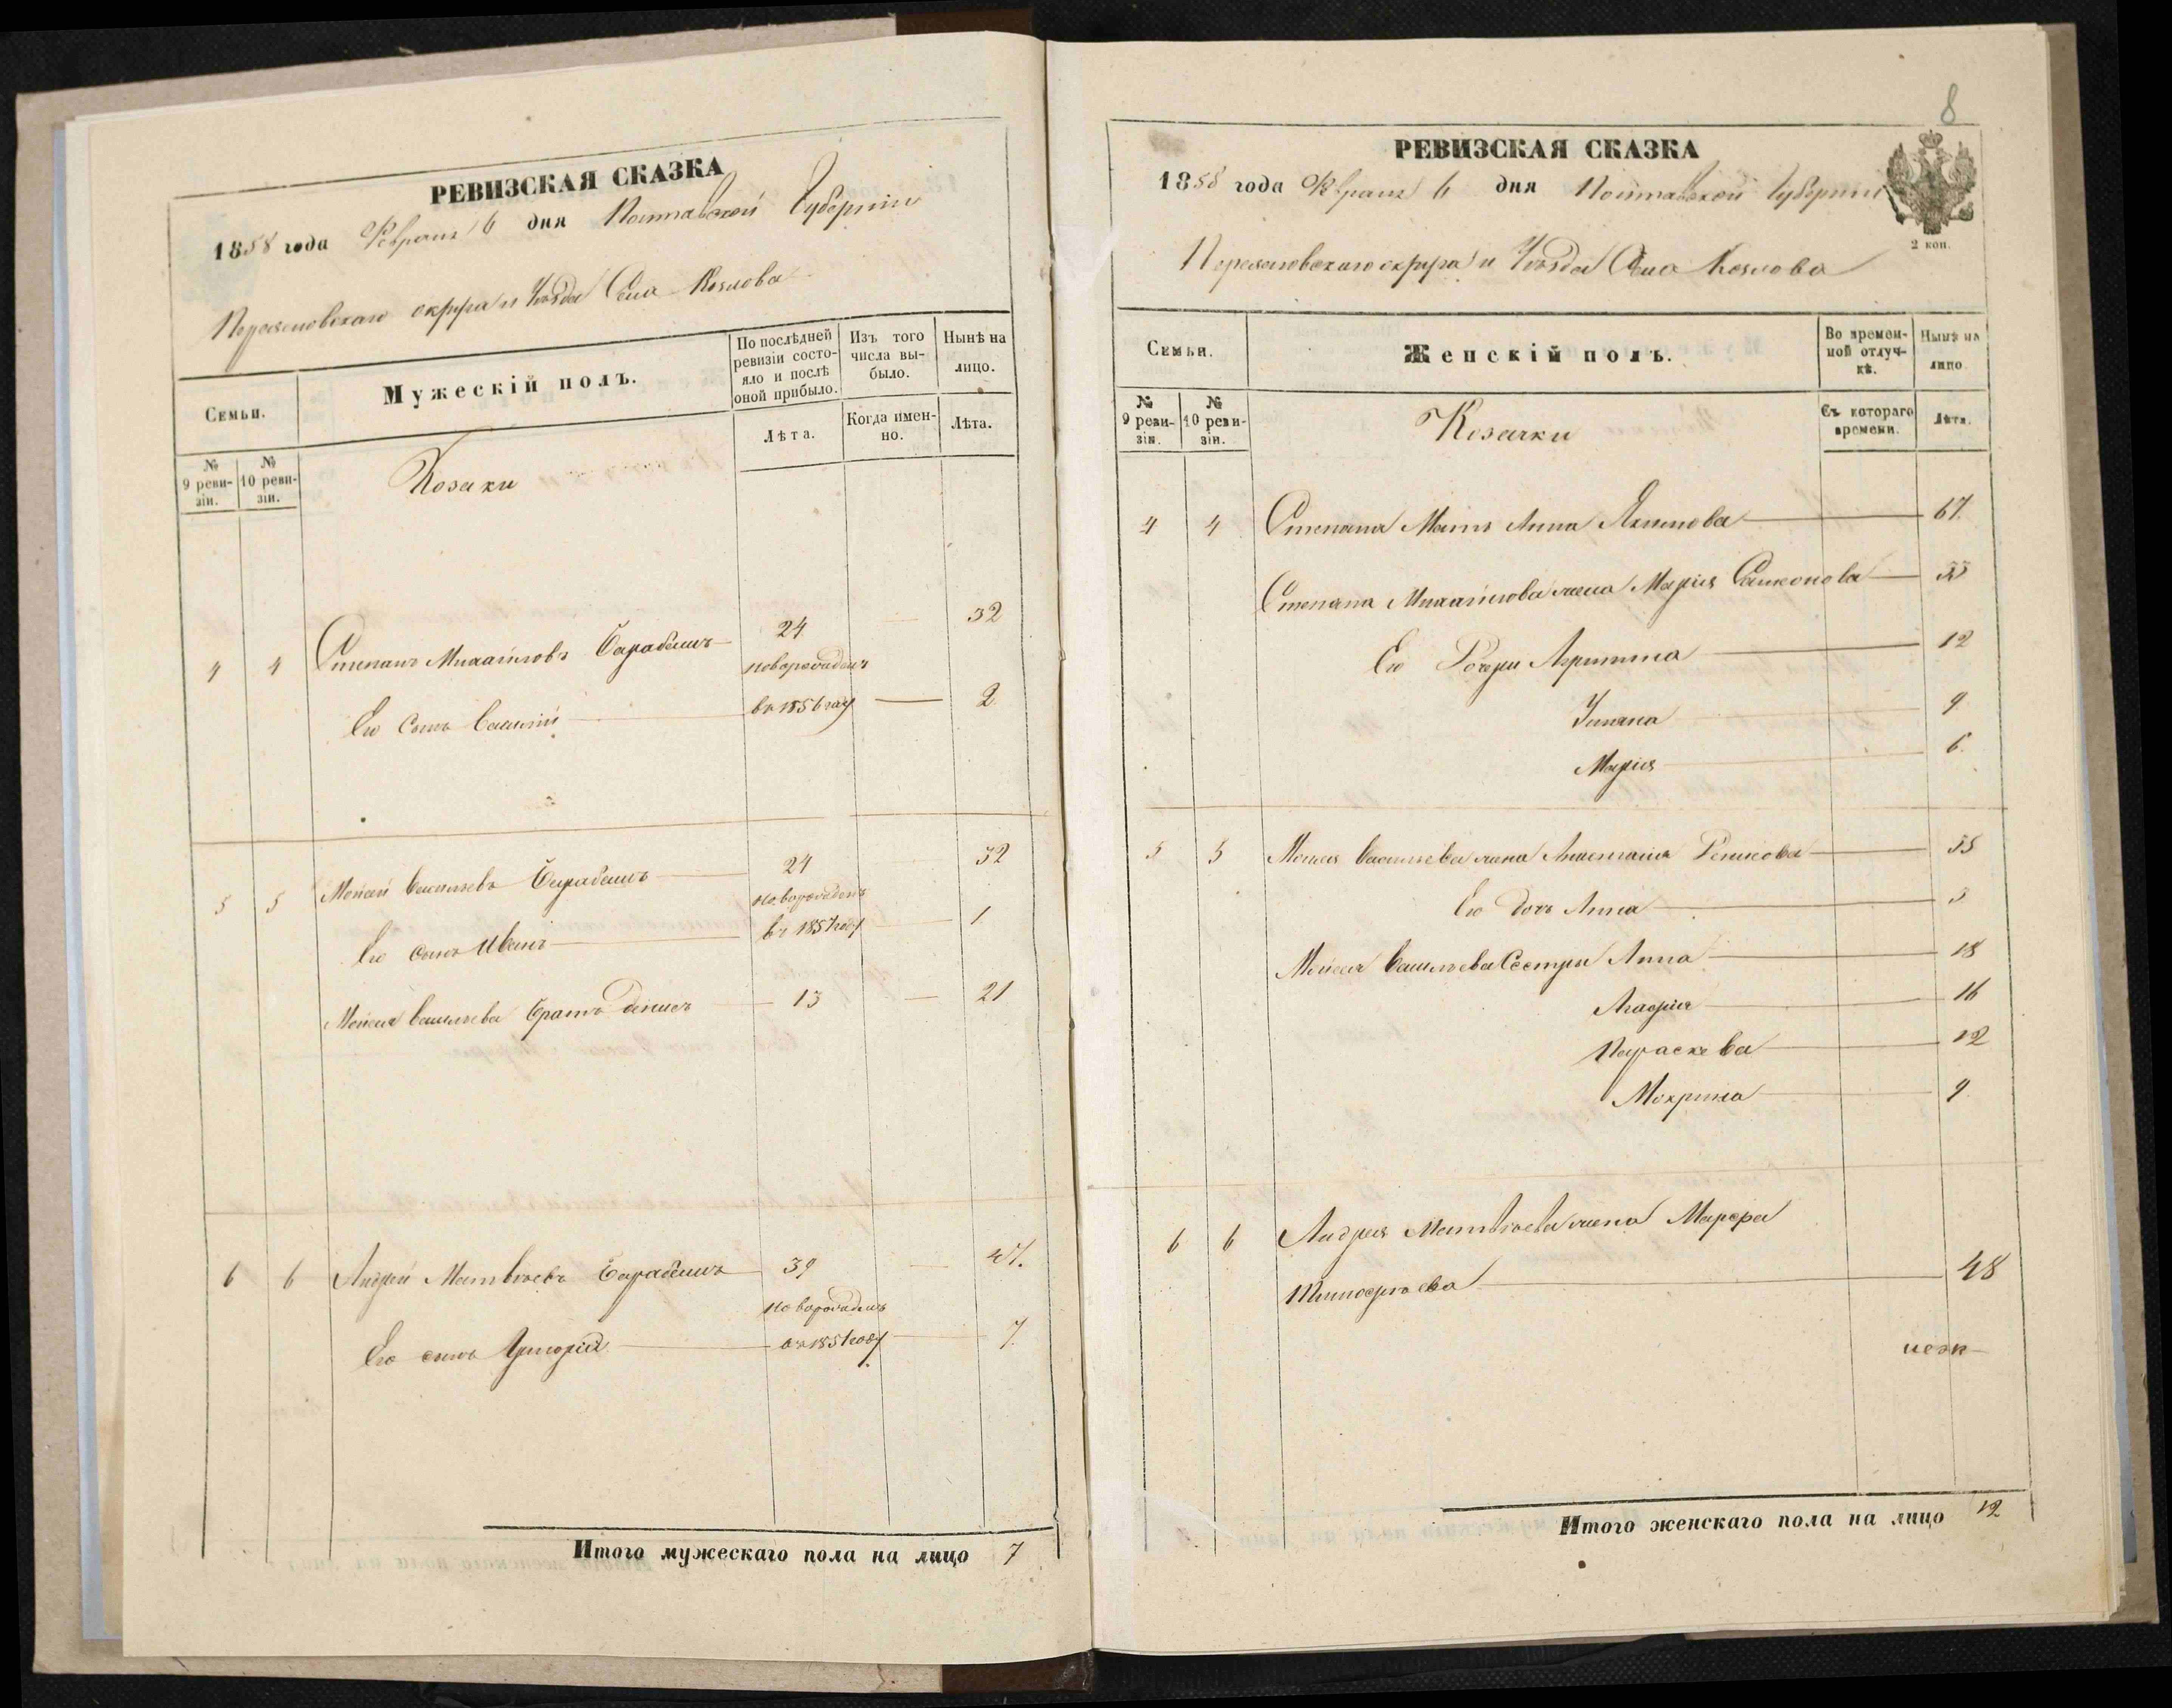 РЕВИЗСКАЯ СКАЗКА
1858 года Февраля 6 дня Полтавской Губернии
Переяславскаго округа и Уѣзда Села Козлова
Семьи.
Мужескій полъ.
По послѣдней ревизіи состояло и послѣ оной прибыло.
Изъ того числа выбыло.
Нынѣ на лицо.
№ 9 реви-зіи.
№ 10 реви-зіи.
Козаки
Лѣта.
Когда имен-но.
Лѣта.
4 4 Степанъ Михайловъ Барабашъ 24 32
новорожденъ
Его Сынъ Василій въ 1856 году 2
5 5 Мойсей Васильевъ Барабашъ 24 32
новорожденъ
Его сынъ Иванъ въ 1857 году 1
Мойсея Васильева братъ Денисъ 13 21
6 6 Андрей Матвѣевъ Барабашъ 39 47.
новорожденъ
Его сынъ Григорій въ 1851 году 7.
Итого мужескаго пола на лицо 7
8
РЕВИЗСКАЯ СКАЗКА
1858 года Февраля 6 дня Полтавской Губернии
2 коп.
Переяславскаго округа и Уѣзда Села Козлова
Семьи.
Женскій полъ.
Во времен-ной отлуч-кѣ.
Нынѣ на лицо
№ 9 реви-зіи.
№ 10 реви-зіи.
Козачки
Съ котораго времени.
Лѣта.
4 4 Степана Мать Анна Якимова 67.
Степана Михайлова жена Марія 33
Его Дочери Агрипина 12
Ульяна 9
Марія 6.
5 5 Мойсея Васильева жена Анастасия
Его дочь Анна
Мойсея Васильева Сестры Анна 18
Агафія 16
Параскева 12
Мокрина 9
6 6 Андрея Матвѣева жена Марфа
Тимофѣева 48
Итого женскаго пола на лицо 12